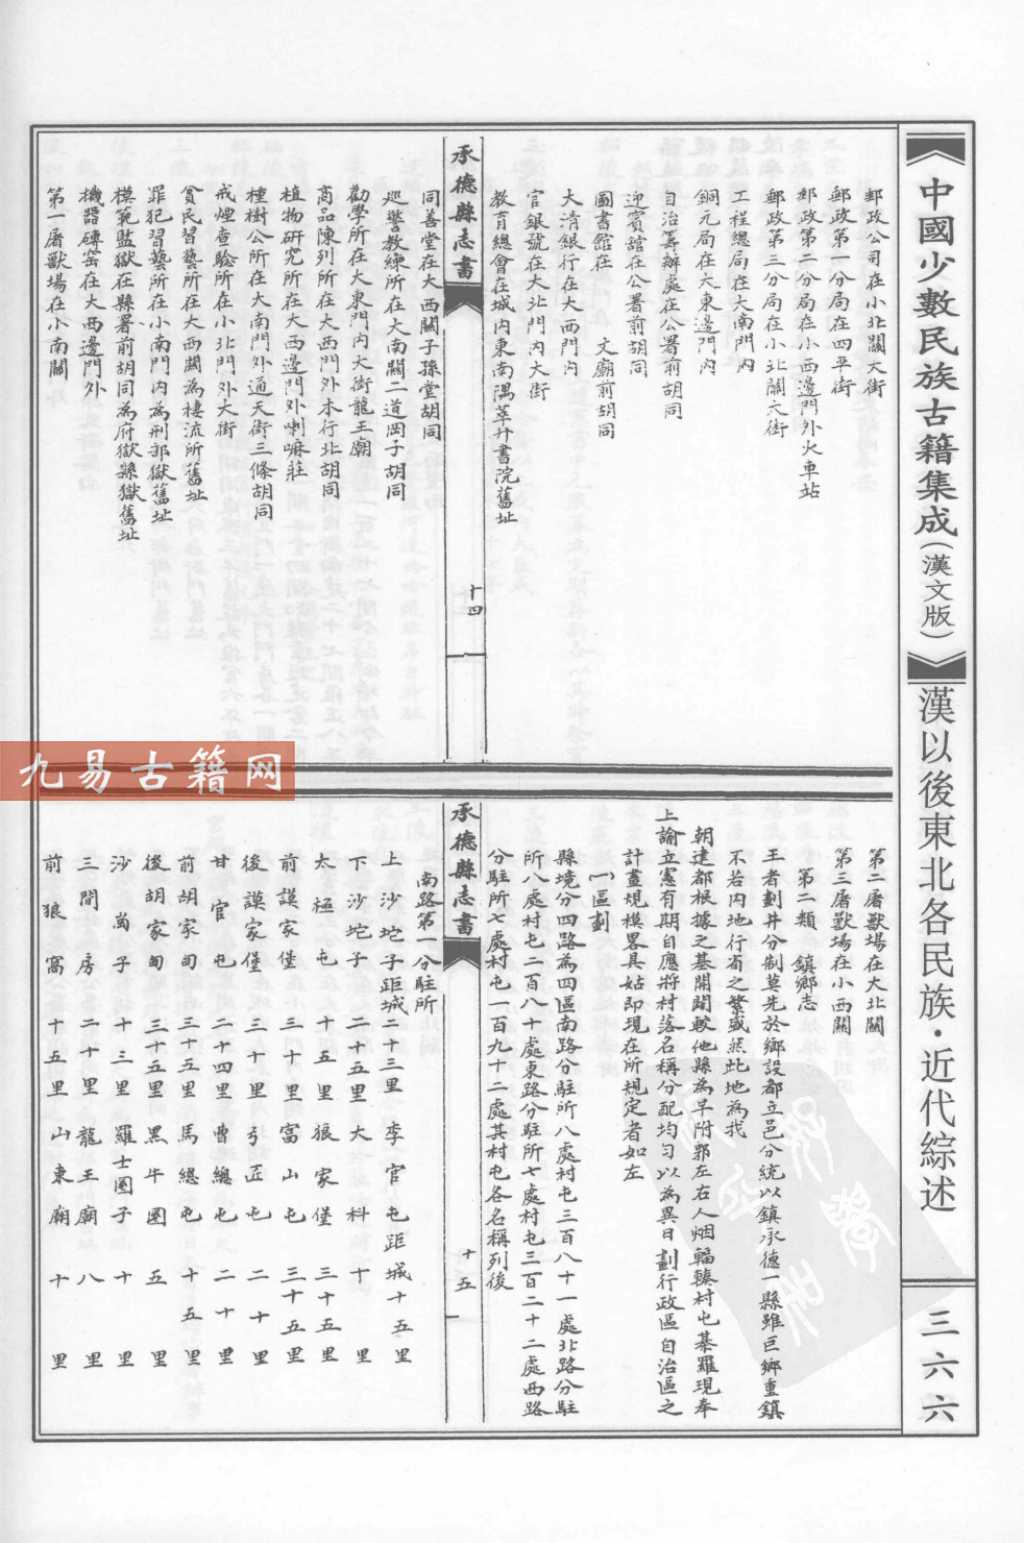 《中國少數民族古籍集成（漢文版）》
漢以後東北各民族·近代綜述
三六六
郵政公司在小北關大街
郵政第一分局在四平街
郵政第二分局在小西邊門外火車站
郵政第三分局在小北關大街
工程總局在大南門內
銅元局在大東邊門內
自治籌辦處在公署前胡同
迎賓館在公署前胡同
圖書館在 文廟前胡同
大清銀行在大西門內
官銀號在大北門內大街
教育總會在城內東南隅萃升書院舊址
承德縣志書
十四
同善堂在大西關子孫堂胡同
巡警教練所在大南關二道岡子胡同
勸學所在大東門內大街龍王廟
商品陳列所在大西門外本行北胡同
植物研究所在大西邊門外喇嘛莊
種樹公所在大南門外通天街三條胡同
戒煙查驗所在小北門外大街
貧民習藝所在大西關為棲流所舊址
罪犯習藝所在小南門內為刑部獄舊址
模範監獄在縣署前胡同為府獄縣獄舊址
機器磚窑在大西邊門外
第一屠獸場在小南關
第二屠獸場在大北關
第三屠獸場在小西關
第二類 鎮鄉志
王者劃井分制莫先於鄉設都立邑分統以鎮承德一縣雖巨鄉重鎮
不若內地行省之繁盛然此地為我
朝建都根據之基開闢較他縣為早附郭左右人烟輻輳村屯棊羅現奉
上諭立憲有期自應將村落名稱分配均勻以為異日劃行政區自治區之
計畫規模畧具姑即現在所規定者如左
㈠區劃
縣境分四路為四區南路分駐所八處村屯三百八十一處北路分駐
所八處村屯二百八十處東路分駐所七處村屯三百二十二處西路
分駐所七處村屯一百九十二處其村屯各名稱列後
承德縣志書
十五
南路第一分駐所
上沙坨子距城二十三里 李官屯距城十五里
下沙坨子 二十五里 大科 十里
太極屯 十五里 狼家堡 三十五里
前謨家堡 三十里 富山屯 三十五里
後謨家堡 三十里 弓匠屯 二十里
甘官屯 二十四里 曹總屯 二十里
前胡家甸 三十五里 馬總屯 十五里
後胡家甸 三十五里 黑牛圈 五里
沙崗子 十三里 羅士圈子 十里
三間房 二十里 龍王廟 八里
前狼窩 十五里 山東廟 十里
九易古籍网